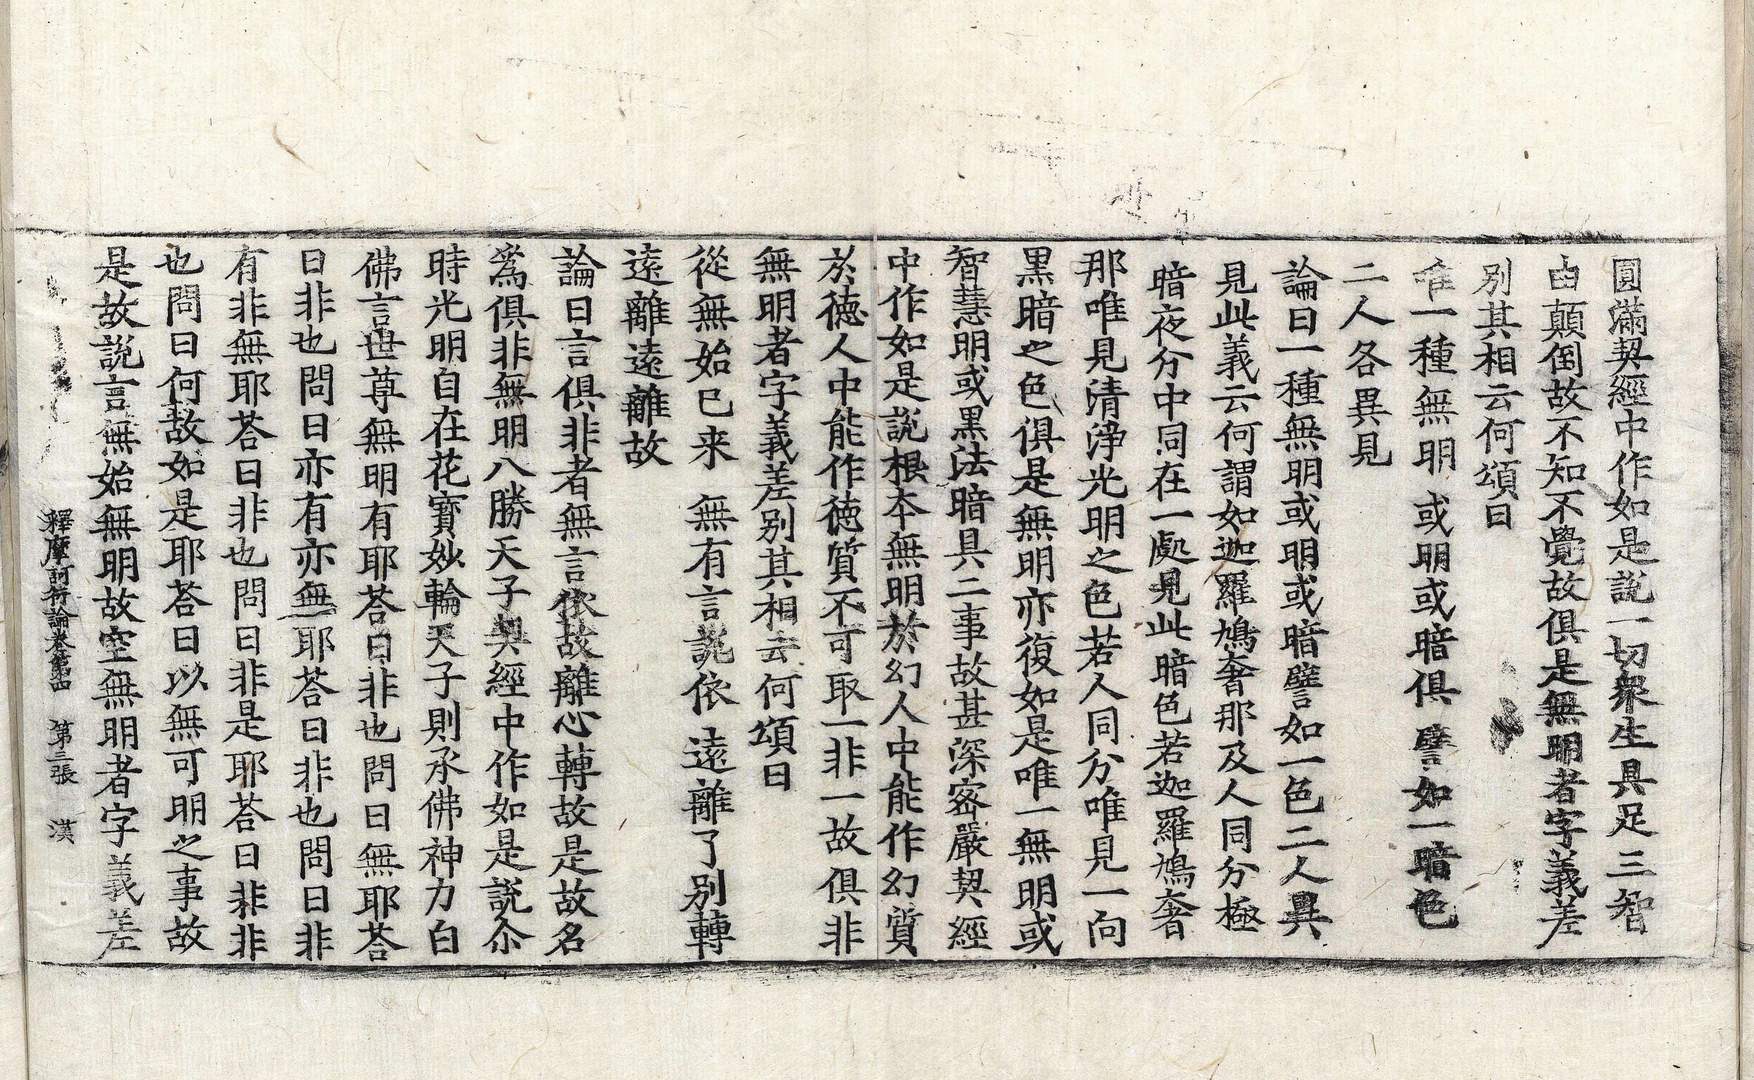 圓滿契經中作如是說一切衆生具足三智
由顛倒故不知不覺故俱是無明者字義差
別其相云何頌曰
唯一種無明　或明或暗俱　譬如一暗色
二人各異見
論曰一種無明或明或暗譬如一色二人異
見此義云何謂如迦羅鳩奢那及人同分極
暗夜分中同在一處見此暗色若迦羅鳩奢
那唯見清淨光明之色若人同分唯見一向
黑暗之色俱是無明亦復如是唯一無明或
智慧明或黑法暗具二事故甚深密嚴契經
中作如是說根本無明於幻人中能作幻質
於德人中能作德質不可取一非一故俱非
無明者字義差別其相云何頌曰
從無始已来　無有言說依　遠離了別轉
遠離遠離故
論曰言俱非者無言依故離心轉故是故名
爲俱非無明八勝天子契經中作如是說尒
時光明自在花寶妙輪天子則承佛神力白
佛言世尊無明有耶荅曰非也問曰無耶荅
曰非也問曰亦有亦無耶荅曰非也問曰非
有非無耶荅曰非也問曰非是耶荅曰非非
也問曰何故如是耶荅曰以無可明之事故
是故說言無始無明故空無明者字義差
釋摩訶衍論卷第四　第三張　漢